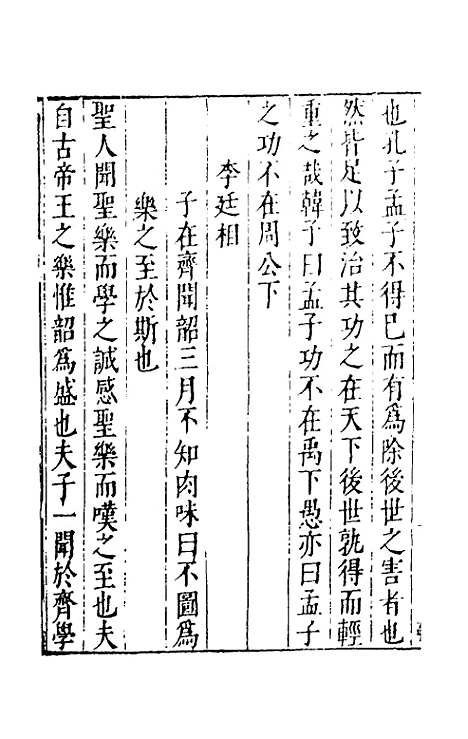 也孔子孟子不得已而有爲除後世之害者也
然皆足以致治其功之在天下後世孰得而輕
重之哉韓子曰孟子功不在禹下愚亦曰孟子
之功不在周公下
李廷相
子在齊聞韶三月不知肉味曰不圖爲
樂之至於斯也
聖人聞聖樂而學之誠感聖樂而嘆之至也夫
自古帝王之樂惟韶爲盛也夫子一聞於齊學